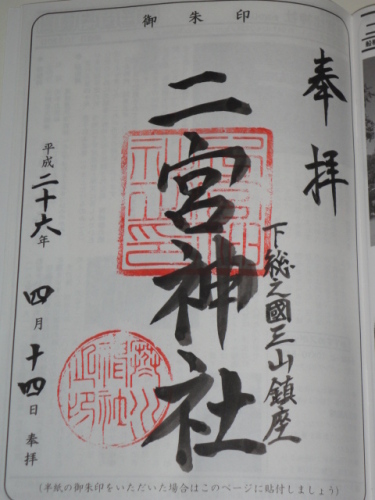 御朱印
奉拝
下総之國三山鎮座
二宮神社
平成二十六年
四月十四日奉拝
(半紙の御朱印をいただいた場合はこのページに貼付しましょう)